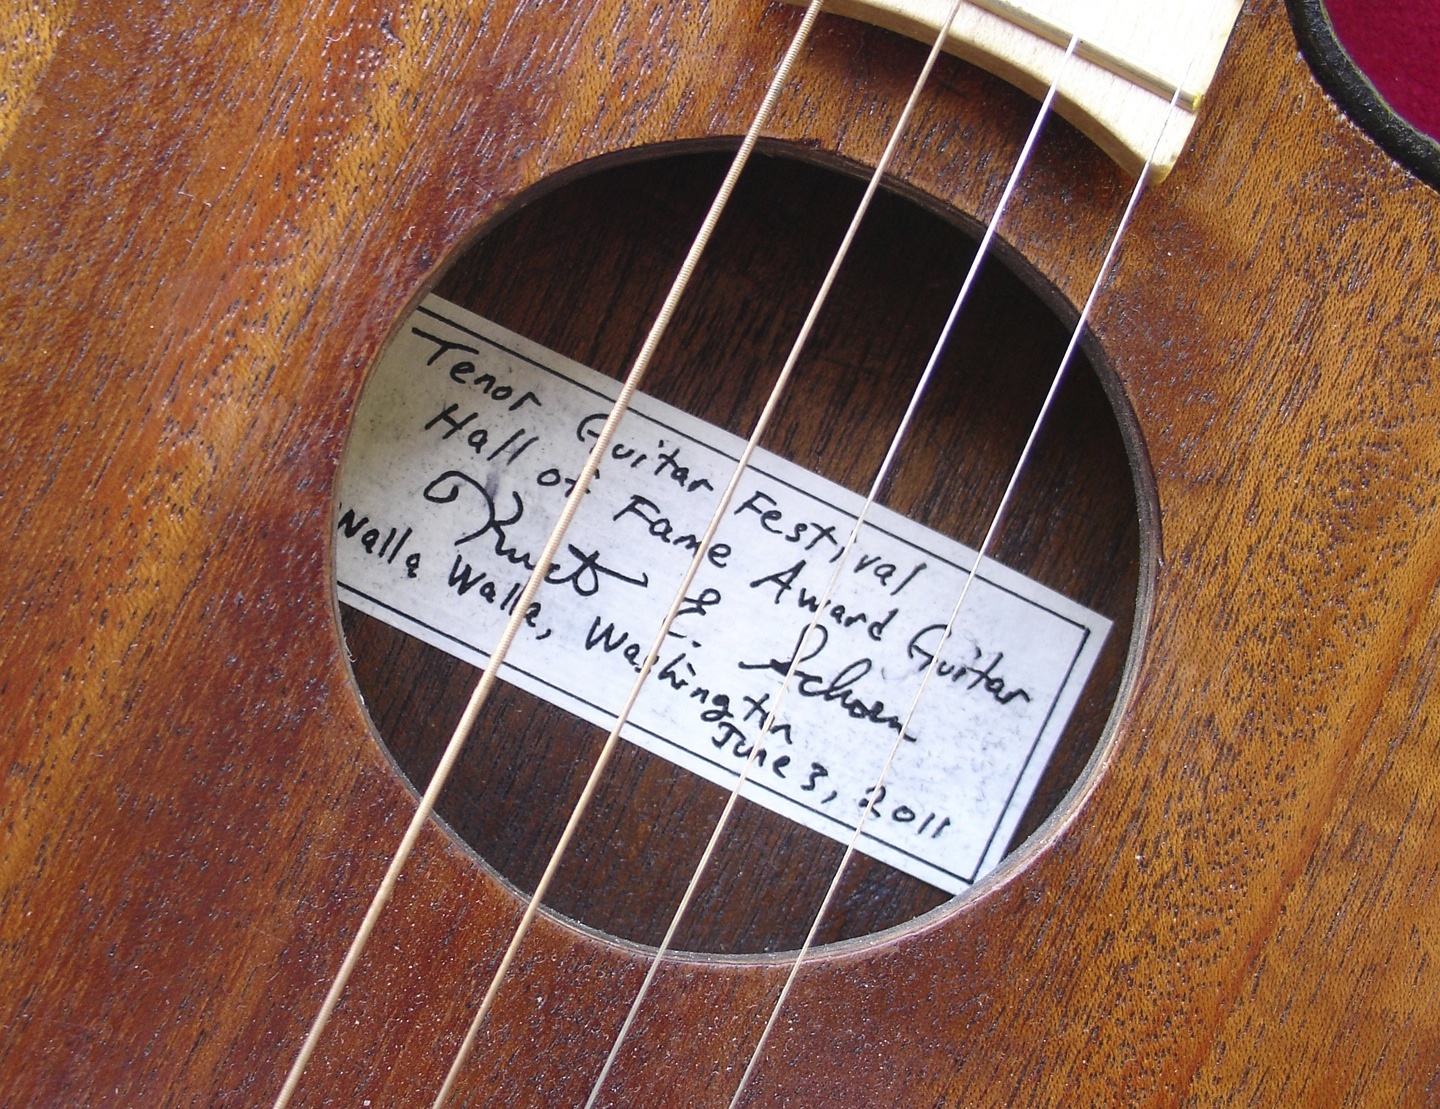 Tenor Guitar Festival
Hall of Fame Award Guitar
Kurt E. Schoen
Walla Walla, Washington
June 3, 2011